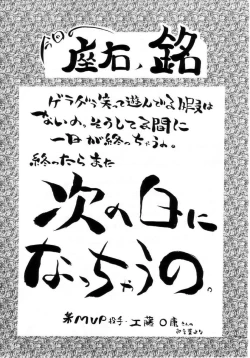 今日の
座右ノ銘
ゲラゲラ笑って遊んでる暇は
ないの。そうしてる間に
一日が終っちゃうの。
終ったらまた
次の日に
なっちゃうの。
米MVP投手・工藤〇康さんの